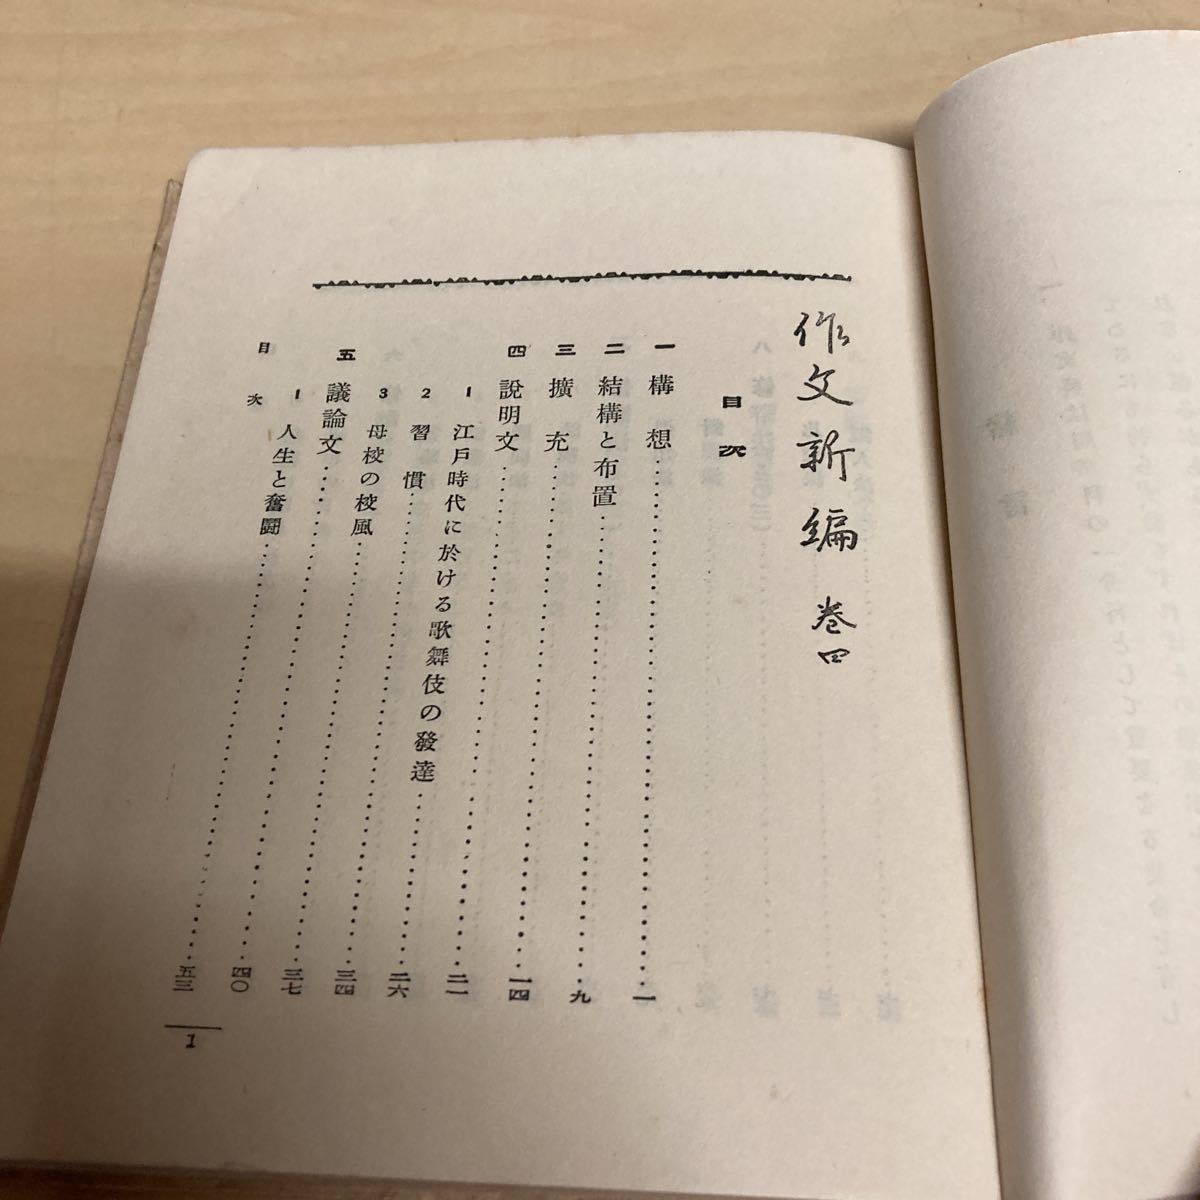 作文新編 卷四
目次
一 構想……一
二 結構と布置……九
三 擴充……一四
四 說明文……二一
1 江戶時代に於ける歌舞伎の發達……二六
2 習慣……三四
3 母校の校風……三七
五 議論文……四〇
1 人生と奮鬪……五三
目次
1